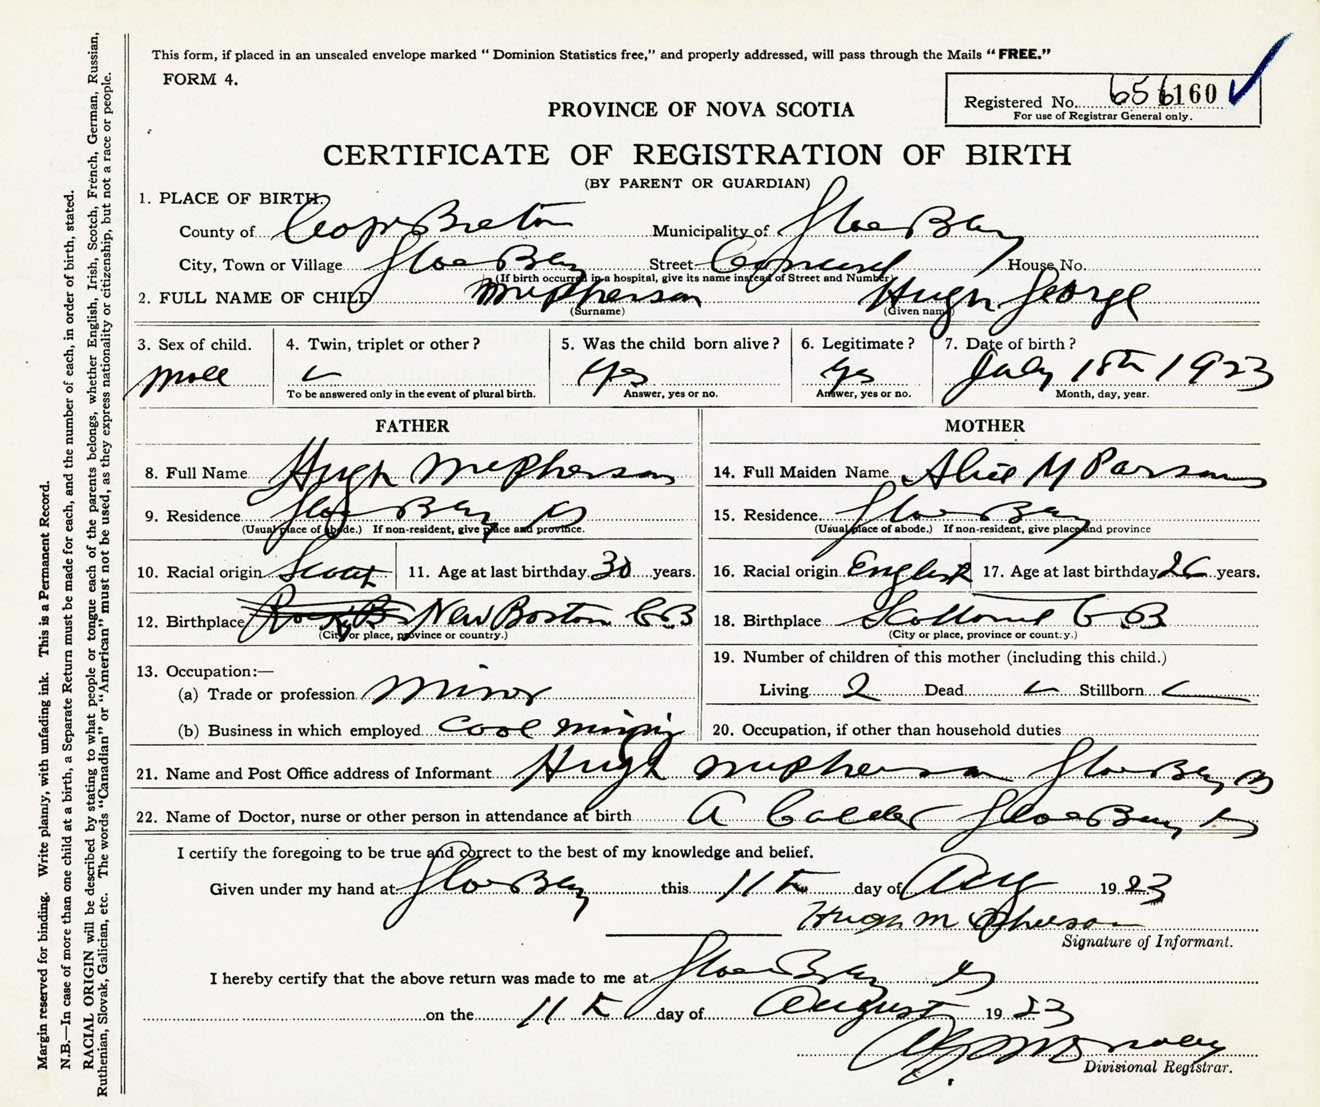 This form, if placed in an unsealed envelope marked “ Dominion Statistics free,” and properly addressed, will pass through the Mails “ FREE.”
FORM 4.
Registered No. 656160
For use of Registrar General only.
PROVINCE OF NOVA SCOTIA
CERTIFICATE OF REGISTRATION OF BIRTH
(BY PARENT OR GUARDIAN)
1. PLACE OF BIRTH,
County of Cape Breton Municipality of Glace Bay
City, Town or Village Glace Bay Street House No.
(If birth occurred in a hospital, give its name instead of Street and Number)
2. FULL NAME OF CHILD McPherson Hugh George
(Surname) (Given name)
3. Sex of child. 4. Twin, triplet or other ? 5. Was the child born alive ? 6. Legitimate ? 7. Date of birth ?
Male Yes Yes July 18th 1923
To be answered only in the event of plural birth. Answer, yes or no. Answer, yes or no. Month, day, year.
FATHER MOTHER
8. Full Name Hugh McPherson 14. Full Maiden Name Alice M Parsons
9. Residence Glace Bay 15. Residence Glace Bay
(Usual place of abode.) If non-resident, give place and province. (Usual place of abode.) If non-resident, give place and province
10. Racial origin Scotch 11. Age at last birthday 30 years. 16. Racial origin English 17. Age at last birthday 26 years.
12. Birthplace New Boston C B 18. Birthplace C B
(City or place, province or country.) (City or place, province or country.)
13. Occupation:— 19. Number of children of this mother (including this child.)
(a) Trade or profession Minor Living 2 Dead Stillborn
(b) Business in which employed Coal mining 20. Occupation, if other than household duties
21. Name and Post Office address of Informant Hugh McPherson Glace Bay
22. Name of Doctor, nurse or other person in attendance at birth A Calder Glace Bay
I certify the foregoing to be true and correct to the best of my knowledge and belief.
Given under my hand at Glace Bay this 11th day of Aug 19 23
Hugh McPherson
Signature of Informant.
I hereby certify that the above return was made to me at Glace Bay
on the 11th day of August 19 23
Divisional Registrar.
Margin reserved for binding. Write plainly, with unfading ink. This is a Permanent Record.
N.B.—In case of more than one child at a birth, a Separate Return must be made for each, and the number of each, in order of birth, stated.
RACIAL ORIGIN will be described by stating to what people or tongue each of the parents belongs, whether English, Irish, Scotch, French, German, Russian,
Ruthenian, Slovak, Galician, etc. The words “Canadian” or “American” must not be used, as they express nationality or citizenship, but not a race or people.